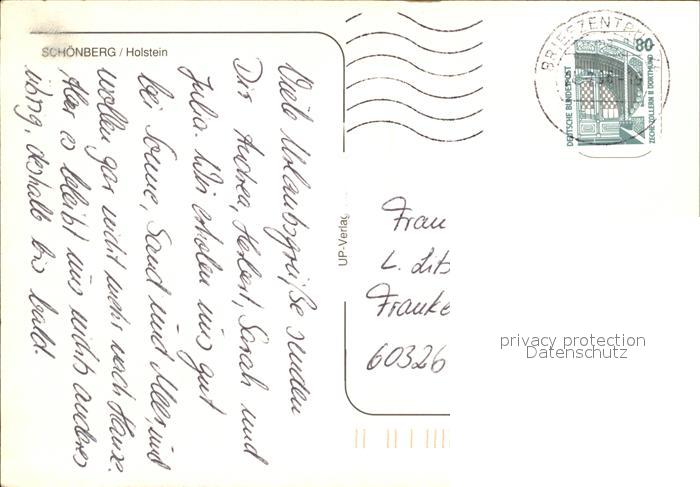 SCHÖNBERG / Holstein
Viele Urlaubsgrüße senden
Dir Andrea, Herbert, Sarah und
Julia. Wir erholen uns gut
bei Sonne, Sand und Meer, und
wollen gar nicht mehr nach Hause.
Aber es bleibt uns nichts anderes
übrig, deshalb bis bald.
UP-Verlag
BRIEFZENTRUM
80
DEUTSCHE BUNDESPOST
ZECHE ZOLLERN II DORTMUND
Frau
L. Lits
Franke
60326
privacy protection
Datenschutz